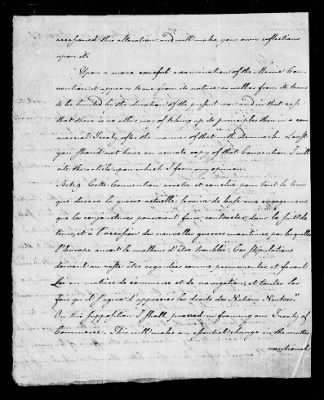 occasioned this alteration and will make your own reflections
upon it.
Upon a more careful examination of the Marine Con-
vention it appears to me from its nature as well as from its terms
to be limited by the duration of the present war and in that case
that there is no other way of taking up its principles than in a com-
mercial Treaty, after the manner of that with Denmark. Lest
you should not have an accurate copy of that Convention I will
cite the article upon which I form my opinion.
Art. 9 Cette Convention arretée et conclue pour tout le tems
que durera la guerre actuelle, servira de base aux engagemens
que les conjonctures pourroient faire contracter, dans la suite du
tems, et à l'occasion des nouvelles guerres maritimes par lesquelles
l'Europe auroit le malheur d'être troublée. Ces stipulations
doivent au reste être regardées comme permanentes, et feront
Loi en matiere de commerce et de navigation, et toutes les
fois qu'il s'agira d'apprecier les droits des Nations Neutres."
On this supposition I shall proceed in framing our Treaty of
Commerce. This will make an essential change in the matter
mentioned